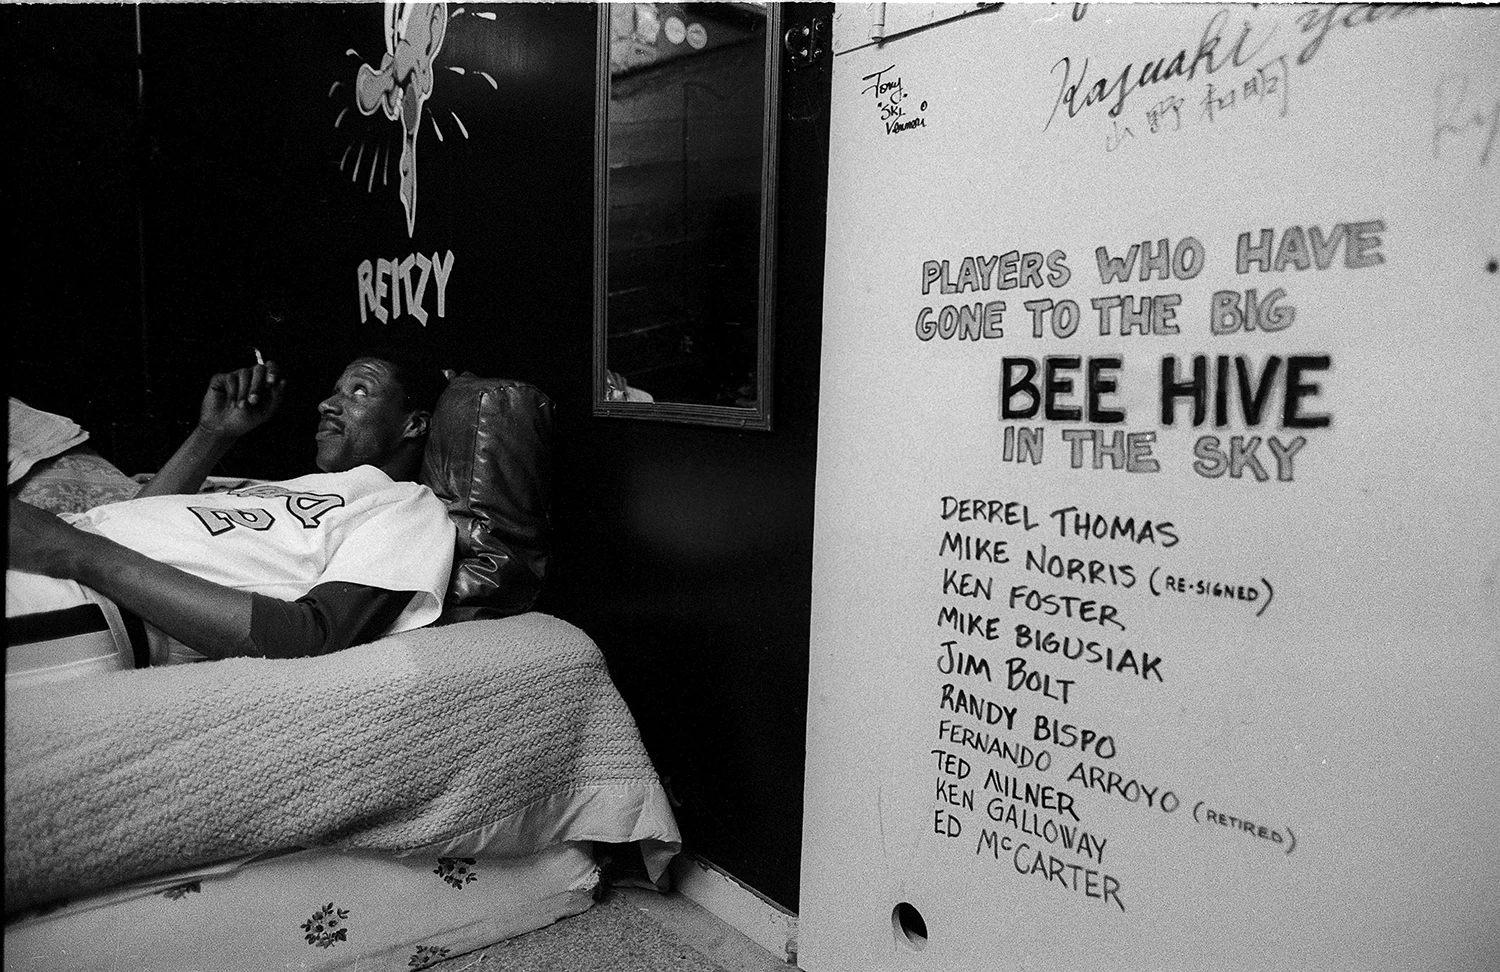 REITZY
Tony
"SKI"
Kazuaki
山野和明
PLAYERS WHO HAVE
GONE TO THE BIG
BEE HIVE
IN THE SKY
DERREL THOMAS
MIKE NORRIS (RE-SIGNED)
KEN FOSTER
MIKE BIGUSIAK
JIM BOLT
RANDY BISPO
FERNANDO ARROYO (RETIRED)
TED MILNER
KEN GALLOWAY
ED McCARTER